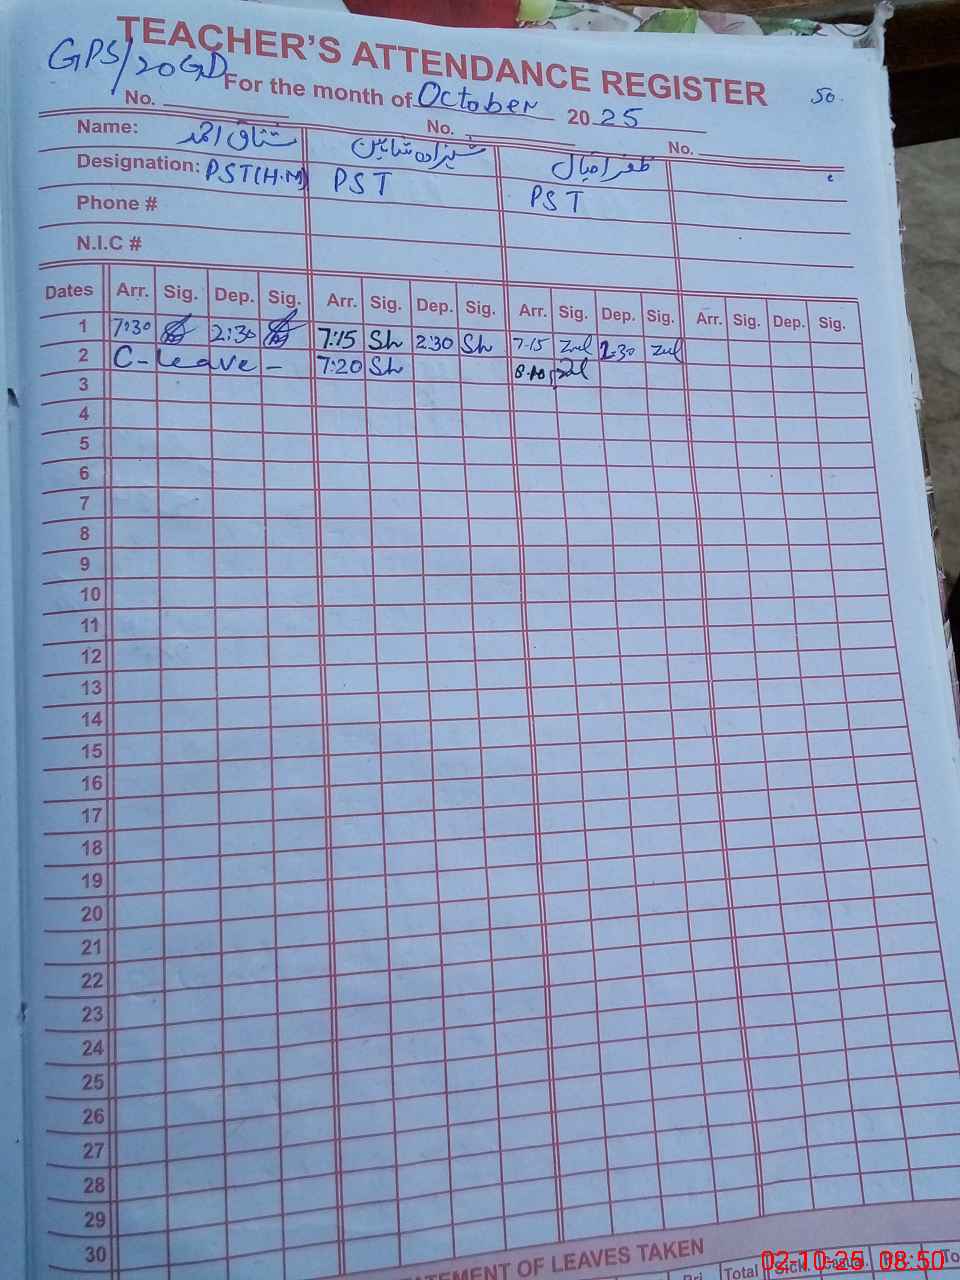 TEACHER'S ATTENDANCE REGISTER
GPS/20GD For the month of October 2025 50.
No. No. No.
Name: مشتاق احمد شہزادہ شاہین ظفر اقبال
Designation: PST(H.M) PST PST
Phone #
N.I.C #
Dates Arr. Sig. Dep. Sig. Arr. Sig. Dep. Sig. Arr. Sig. Dep. Sig. Arr. Sig. Dep. Sig.
1 7:30 2:30 7:15 Sh 2:30 Sh 7-15 2:30
2 C-Leave- 7:20 Sh
3
4
5
6
7
8
9
10
11
12
13
14
15
16
17
18
19
20
21
22
23
24
25
26
27
28
29
30
TEMENT OF LEAVES TAKEN
Pri. Total Sick. To
02-10-25 08:50